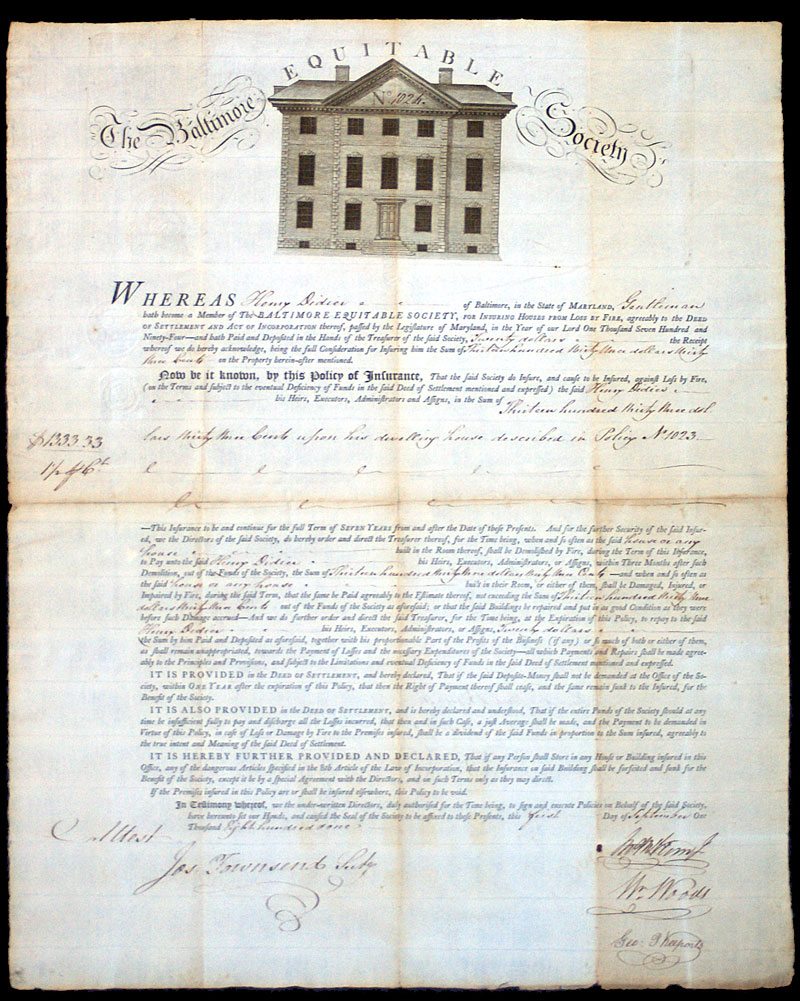 The Baltimore EQUITABLE Society
No. 1024.
WHEREAS Henry Didier of Baltimore, in the State of MARYLAND, Gentleman
hath become a Member of The BALTIMORE EQUITABLE SOCIETY, FOR INSURING HOUSES FROM LOSS BY FIRE, agreeably to the DEED
OF SETTLEMENT AND ACT OF INCORPORATION thereof, passed by the Legislature of Maryland, in the Year of our Lord One Thousand Seven Hundred and
Ninety-Four—and hath Paid and Deposited in the Hands of the Treasurer of the said Society, Twenty dollars the Receipt
whereof we do hereby acknowledge, being the full Consideration for Insuring him the Sum of Thirteen hundred thirty three dollars thirty
three Cents on the Property herein-after mentioned.
Now be it known, by this Policy of Insurance, That the said Society do Insure, and cause to be Insured, against Loss by Fire,
(on the Terms and subject to the eventual Deficiency of Funds in the said Deed of Settlement mentioned and expressed) the said Henry Didier
his Heirs, Executors, Administrators and Assigns, in the Sum of
Thirteen hundred thirty three dol
$1333.33 lars thirty three Cents upon his dwelling house described in Policy No 1023.
—This Insurance to be and continue for the full Term of SEVEN YEARS from and after the Date of these Presents. And for the further Security of the said Insur-
ed, we the Directors of the said Society, do hereby order and direct the Treasurer thereof, for the Time being, when and so often as the said house or any
house built in the Room thereof, shall be Demolished by Fire, during the Term of this Insurance,
to Pay unto the said Henry Didier his Heirs, Executors, Administrators, or Assigns, within Three Months after such
Demolition, out of the Funds of the Society, the Sum of Thirteen hundred thirty three dollars thirty three Cents —and when and so often as
the said house or any house built in their Room, or either of them, shall be Damaged, Injured, or
Impaired by Fire, during the said Term, that the same be Paid agreeably to the Estimate thereof, not exceeding the Sum of Thirteen hundred thirty three
dollars thirty three Cents out of the Funds of the Society as aforesaid; or that the said Buildings be repaired and put in as good Condition as they were
before such Damage accrued—And we do further order and direct the said Treasurer, for the Time being, at the Expiration of this Policy, to repay to the said
Henry Didier his Heirs, Executors, Administrators, or Assigns, Twenty dollars
the Sum by him Paid and Deposited as aforesaid, together with his proportionable Part of the Profits of the Business (if any) or so much of both or either of them,
as shall remain unappropriated, towards the Payment of Losses and the necessary Expenditures of the Society—all which Payments and Repairs shall be made agree-
ably to the Principles and Provisions, and subject to the Limitations and eventual Deficiency of Funds in the said Deed of Settlement mentioned and expressed.
IT IS PROVIDED IN THE DEED OF SETTLEMENT, and hereby declared, That if the said Deposite-Money shall not be demanded at the Office of the So-
ciety, within ONE YEAR after the expiration of this Policy, that then the Right of Payment thereof shall cease, and the same remain sunk to the Insured, for the
Benefit of the Society.
IT IS ALSO PROVIDED IN THE DEED OF SETTLEMENT, and is hereby declared and understood, That if the entire Funds of the Society should at any
time be insufficient fully to pay and discharge all the Losses incurred, that then and in such Case, a just Average shall be made, and the Payment to be demanded in
Virtue of this Policy, in case of Loss or Damage by Fire to the Premises insured, shall be a dividend of the said Funds in proportion to the Sum insured, agreeably to
the true intent and Meaning of the said Deed of Settlement.
IT IS HEREBY FURTHER PROVIDED AND DECLARED, That if any Person shall Store in any House or Building insured in this
Office, any of the dangerous Articles specified in the 8th Article of the Law of Incorporation, that the Insurance on said Building shall be forfeited and sunk for the
Benefit of the Society, except it be by a special Agreement with the Directors, and on such Terms only as they may direct.
If the Premises insured in this Policy are or shall be insured elsewhere, this Policy to be void.
In Testimony whereof, we the under-written Directors, duly authorised for the Time being, to sign and execute Policies in Behalf of the said Society,
have hereunto set our Hands, and caused the Seal of the Society to be affixed to these Presents, this first Day of September One
Thousand Eight hundred & one
Attest
Jos. Townsend Secty
Wm. Woods